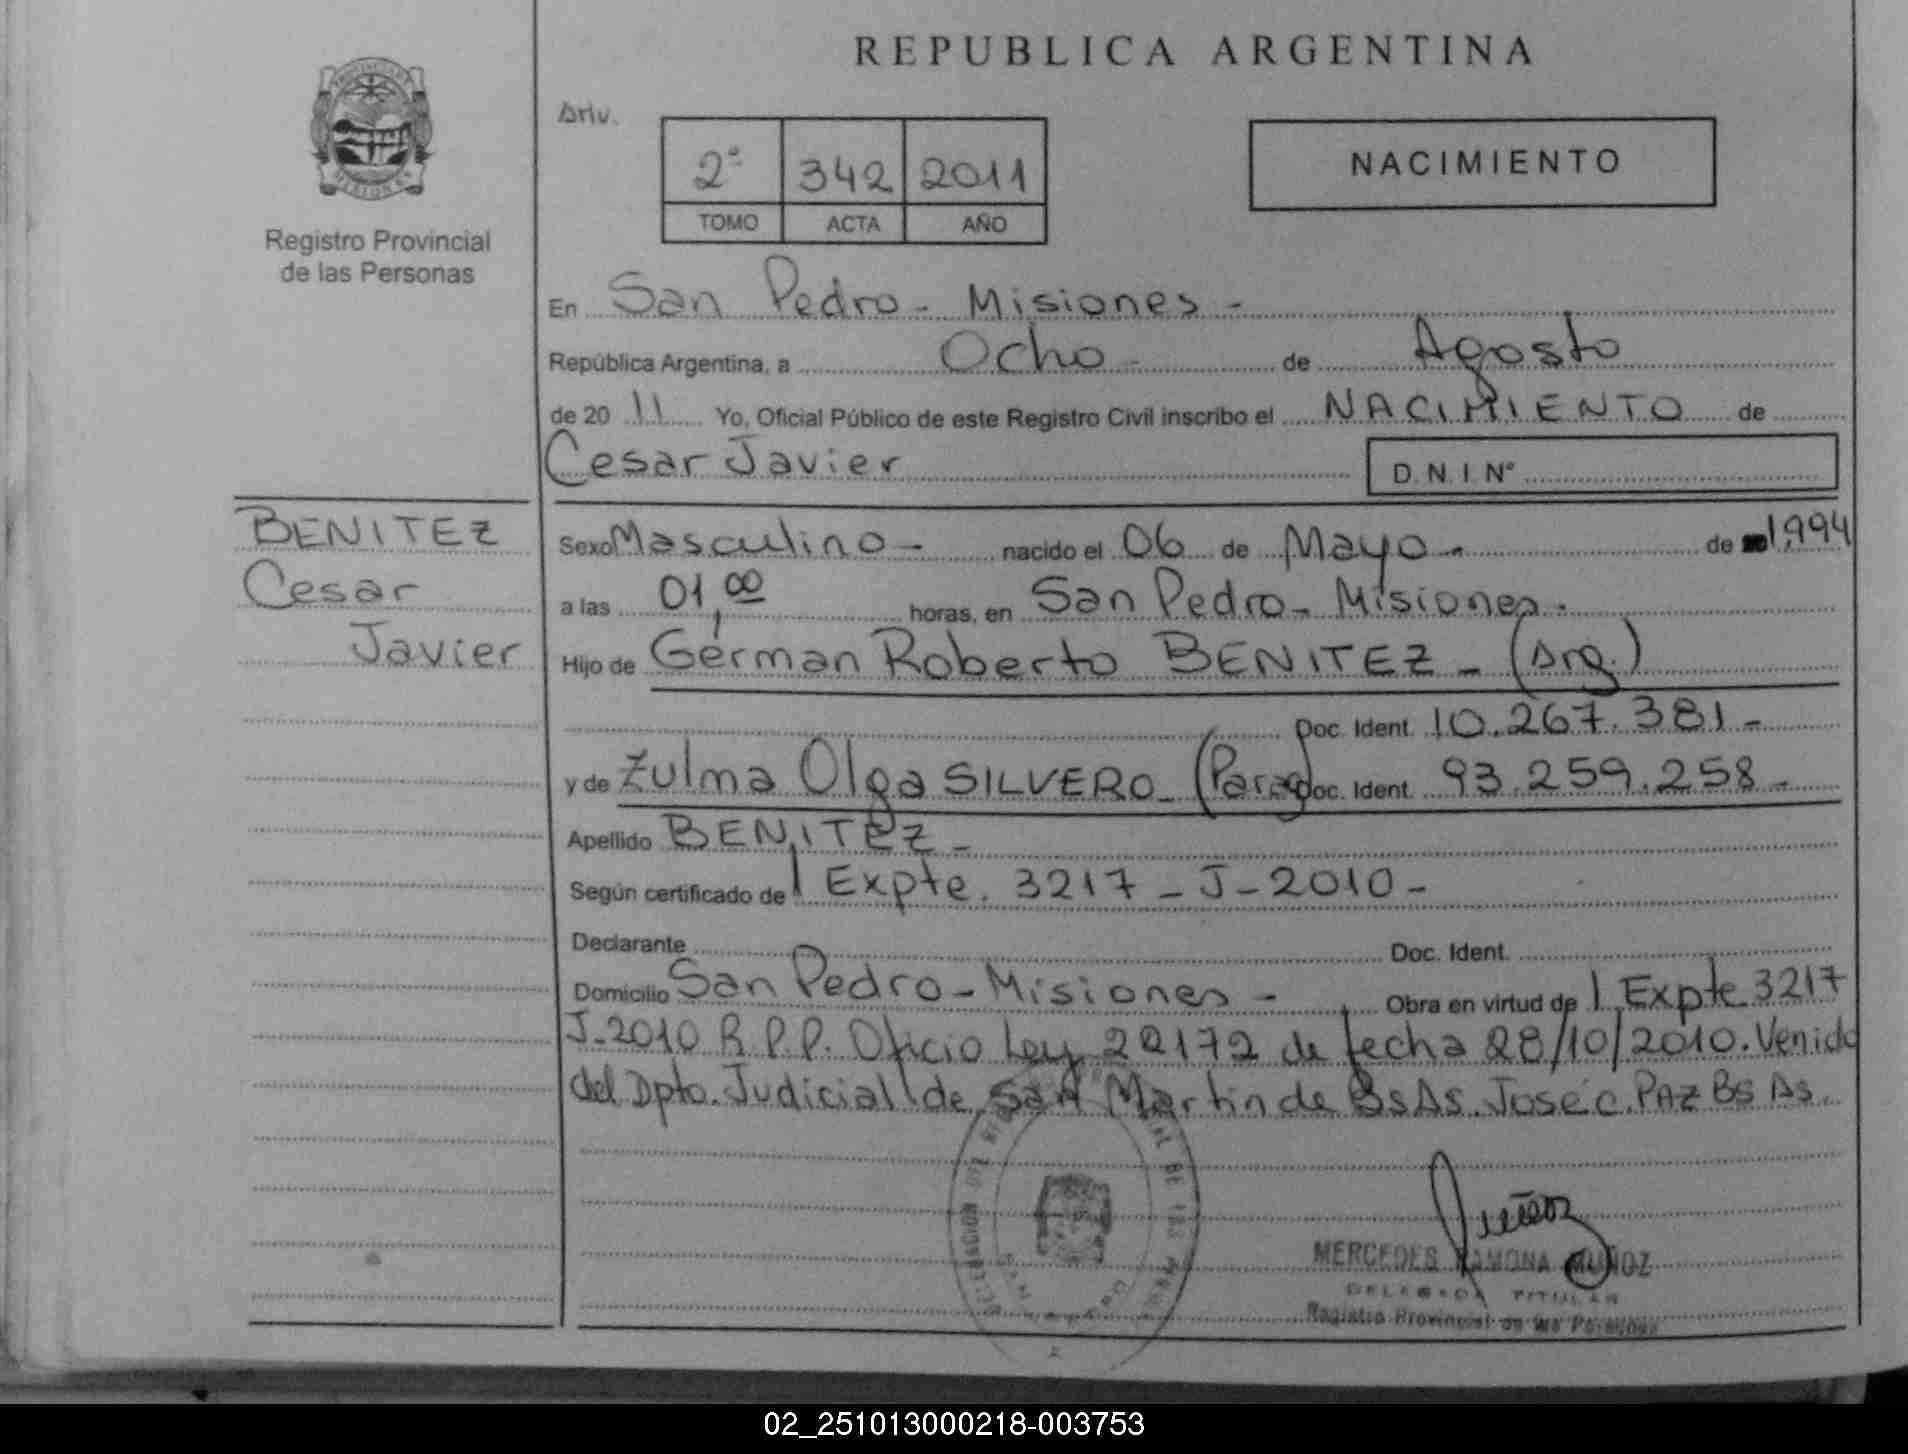 REPUBLICA ARGENTINA
PROVINCIA DE MISIONES
Registro Provincial
de las Personas
Driv.
2ª 342 2011
TOMO ACTA AÑO
NACIMIENTO
En San Pedro - Misiones -
República Argentina, a Ocho - de Agosto
de 20 11 Yo, Oficial Público de este Registro Civil inscribo el NACIMIENTO de
Cesar Javier D.N.I. Nº
BENITEZ
Cesar
Javier
Sexo Masculino - nacido el 06 de Mayo - de 1.994
a las 01,00 horas, en San Pedro - Misiones.
Hijo de Gérman Roberto BENITEZ - (Arg.)
Doc. Ident. 10.267.381 -
y de Zulma Olga SILVERO - (Parag Doc. Ident. 93.259.258 -
Apellido BENITEZ -
Según certificado de Expte. 3217 - J - 2010 -
Declarante Doc. Ident.
Domicilio San Pedro - Misiones - Obra en virtud de Expte 3217
J-2010 R.P.P. Oficio Ley 22172 de fecha 28/10/2010. Venido
del Dpto. Judicial de San Martin de Bs As. José C. PAZ Bs As.
MERCEDES RAMONA MUÑOZ
DELEGADA TITULAR
Registro Provincial de las Personas
02_251013000218-003753